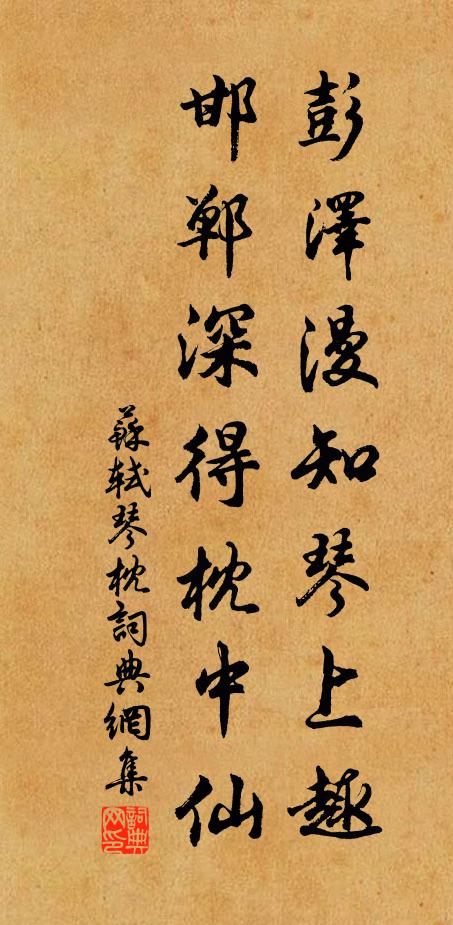 彭澤漫知琴上趣
邯鄲深得枕中仙
蘇軾琴枕詞典網集
詞典网印